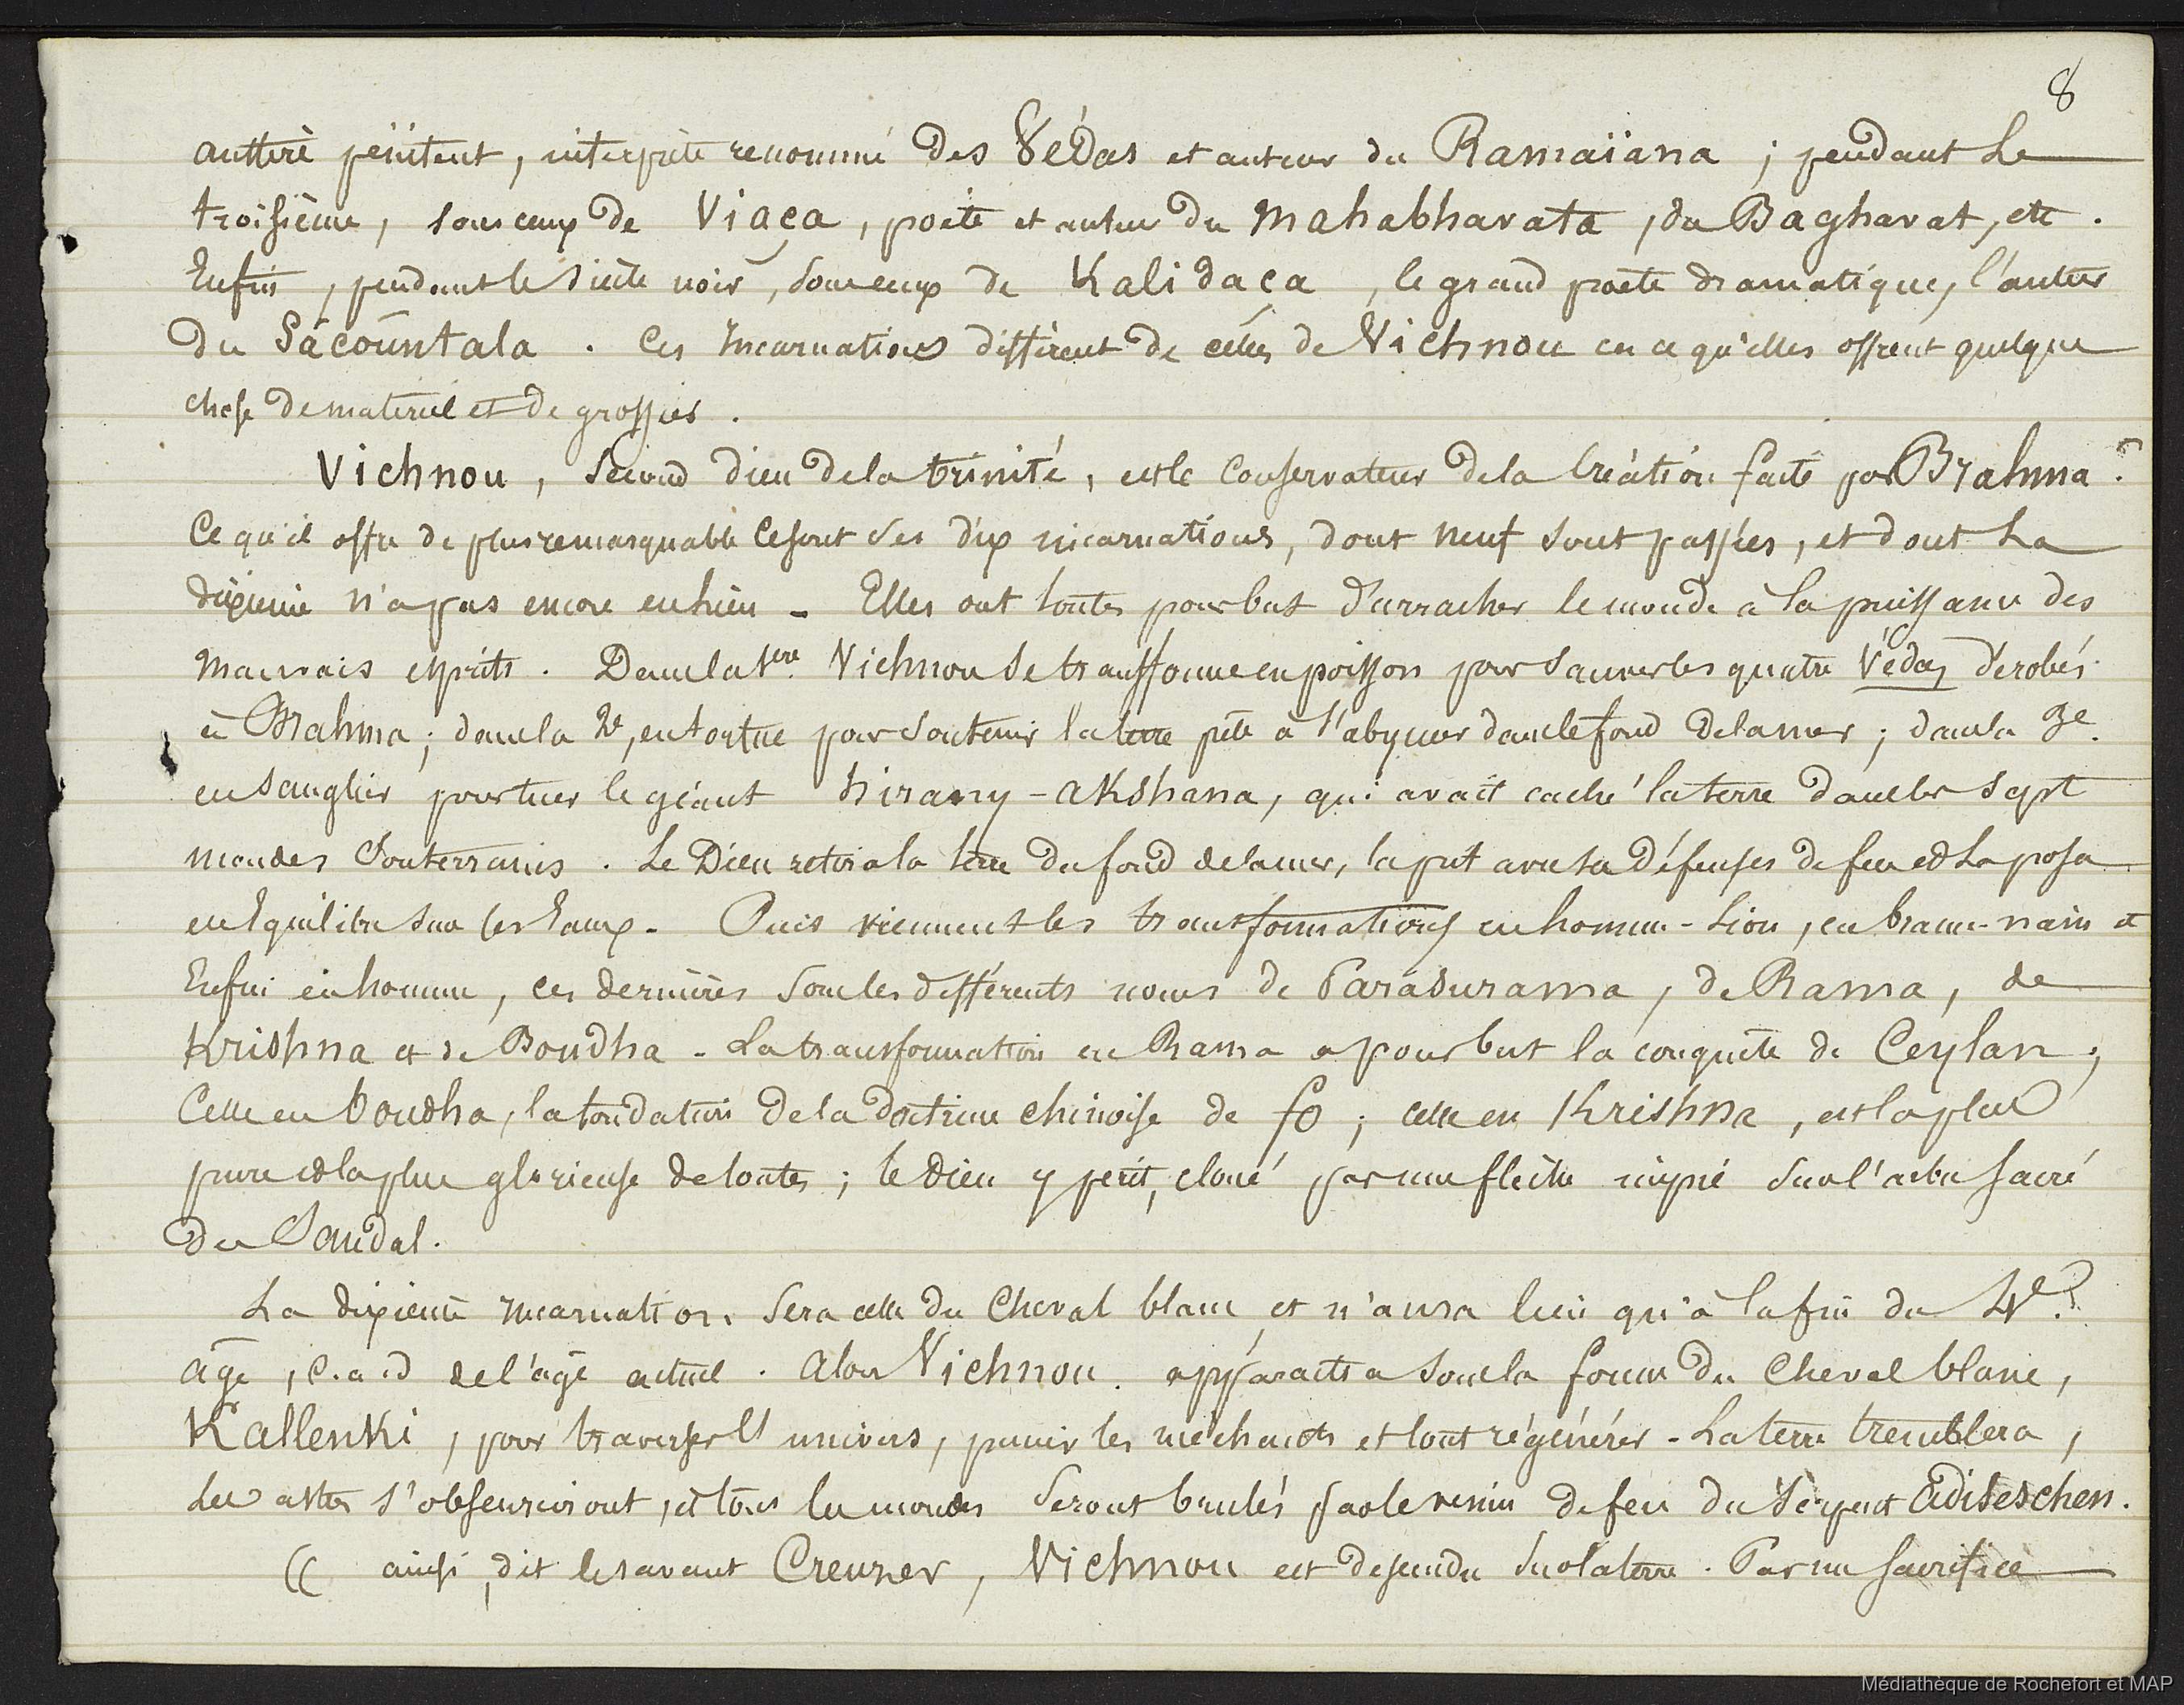 8
austère pénitent, interprète renommé des Védas et auteur du Ramaïana ; pendant Le
troisième, sous ceux de Viaça, poète et auteur du Mahabharata, du Bagharat, etc.
Enfin, pendant le siècle noir, sous ceux de Kalidaça, le grand poète dramatique, l'auteur
du Sacountala. Ces Incarnations diffèrent de celles de Vichnou en ce qu'elles offrent quelque
chose de matériel et de grossier.
Vichnou, Second dieu de la trinité, est le Conservateur de la Création faite par Brahma.
Ce qu'il offre de plus remarquable ce sont ses dix incarnations, dont neuf sont passées, et dont La
dixième n'a pas encore eu lieu - Elles ont toutes pour but d'arracher le monde à la puissance des
mauvais esprits. Dans la 1ère Vichnou se transforme en poisson pour sauver les quatre Védas dérobés
à Brahma ; dans la 2e, en tortue pour soutenir la terre prête à s'abymer dans le fond de la mer ; dans la 3e.
en Sanglier pour tuer le géant hirany-akshana, qui avait caché la terre dans les sept
mondes Souterrains. Le Dieu retira la terre du fond de la mer, la prit avec ses défenses de feu et La posa
en Equilibre sur les Eaux - Puis viennent les transformations en homme-Lion, en brame-nain et
Enfin en homme, ces dernières sous les différents noms de Parasurama, de Rama, de
Krishna et de Boudha - La transformation en Rama a pour but la conquête de Ceylan ;
Celle en boudha, la fondation de la doctrine chinoise de fo ; celle en Krishna, est la plus
pure et la plus glorieuse de toutes ; le dieu y périt, cloué par une flèche impie sur l'arbre sacré
du Sandal.
La dixième Incarnation sera celle du Cheval blanc, et n'aura lieu qu'à la fin du 4e.
âge, c.a.d de l'âge actuel. Alors Vichnou apparaitra sous la forme du Cheval blanc,
Kallenki, pour traverser l'univers, punir les méchants et tout régénérer - La terre tremblera,
Les astres s'obscurciront, et tous les mondes seront brulés par le venin de feu du Serpent Adiseschen.
(( ainsi, dit le savant Creuzer, Vichnou est descendu sur la terre. Par un Sacrifice
Médiathèque de Rochefort et MAP